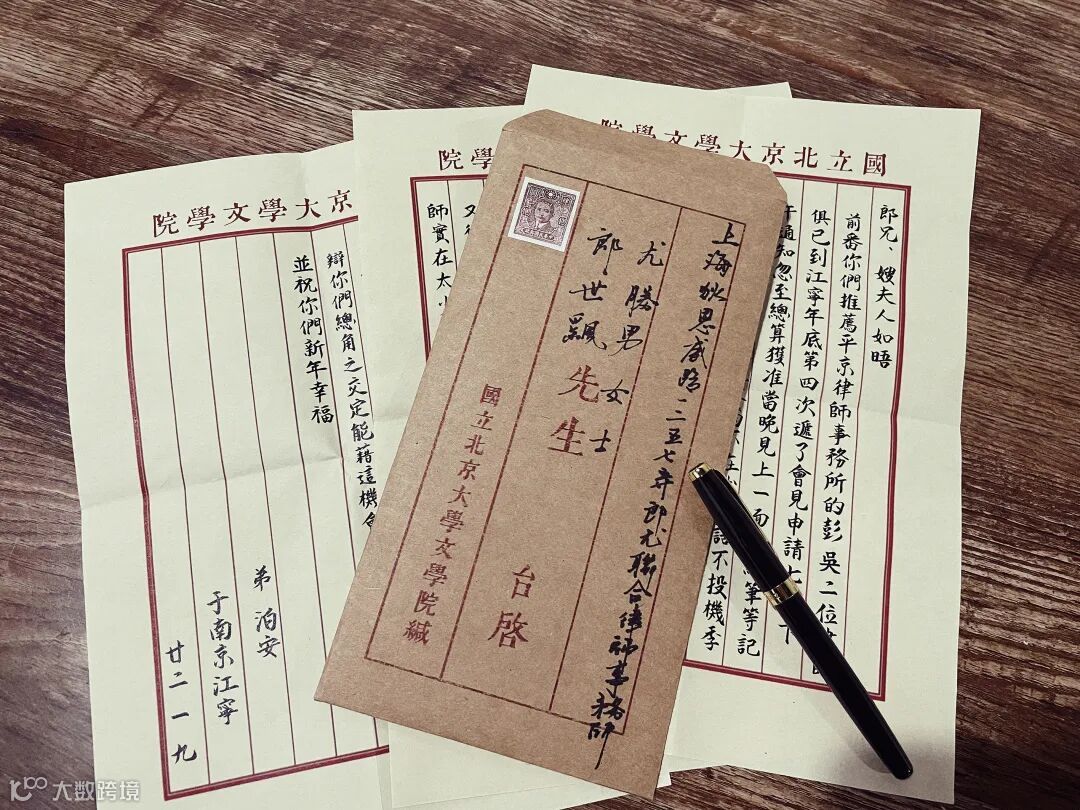 國立北京大學文學院
郎兄、嫂夫人如晤
前番你們推薦平京律師事務所的彭吳二位
俱已到江寧年底第四次遞了會見申請七
午通知忽至總算獲准當晚見上一面 筆等記
話不投機季
學院
師實在太
京大學文學院
辯你們總角之交定能藉這機
並祝你們新年幸福
弟 泊安
于南京江寧
廿二一九
上海狄思威路一二五七弄郎尤聯合律師事務所
尤勝男女士
郎世飄先生
台啓
國立北京大學文學院緘
大数跨境